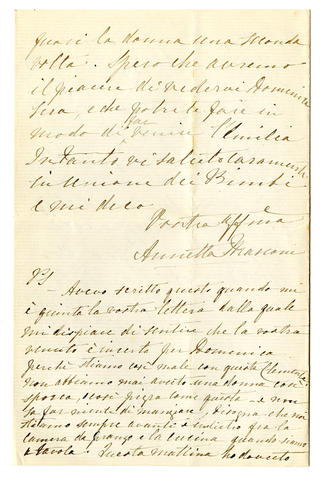 quasi la donna una seconda
volta. Spero che avremo
il piacere di vedervi Domenica
sera, e che potrete fare in
modo di far venire l'Emilia
Intanto vi saluto caramente
in unione dei Bimbi
e mi dico
Vostra affma
Annetta
PS
- Avevo scritto questo quando mi
è giunta la vostra lettera dalla quale
mi dispiace di sentire che la vostra
venuta è incerta per Domenica
perché stiamo così male con questa Clementa
non abbiamo mai avuto una donna così
sporca, e così pigra come questa e non
sa far niente di mangiare, bisogna che noi
stiamo sempre avanti e indietro fra la
camera da pranzo e la cucina quando siamo
a tavola. Questa mattina ho dovuto